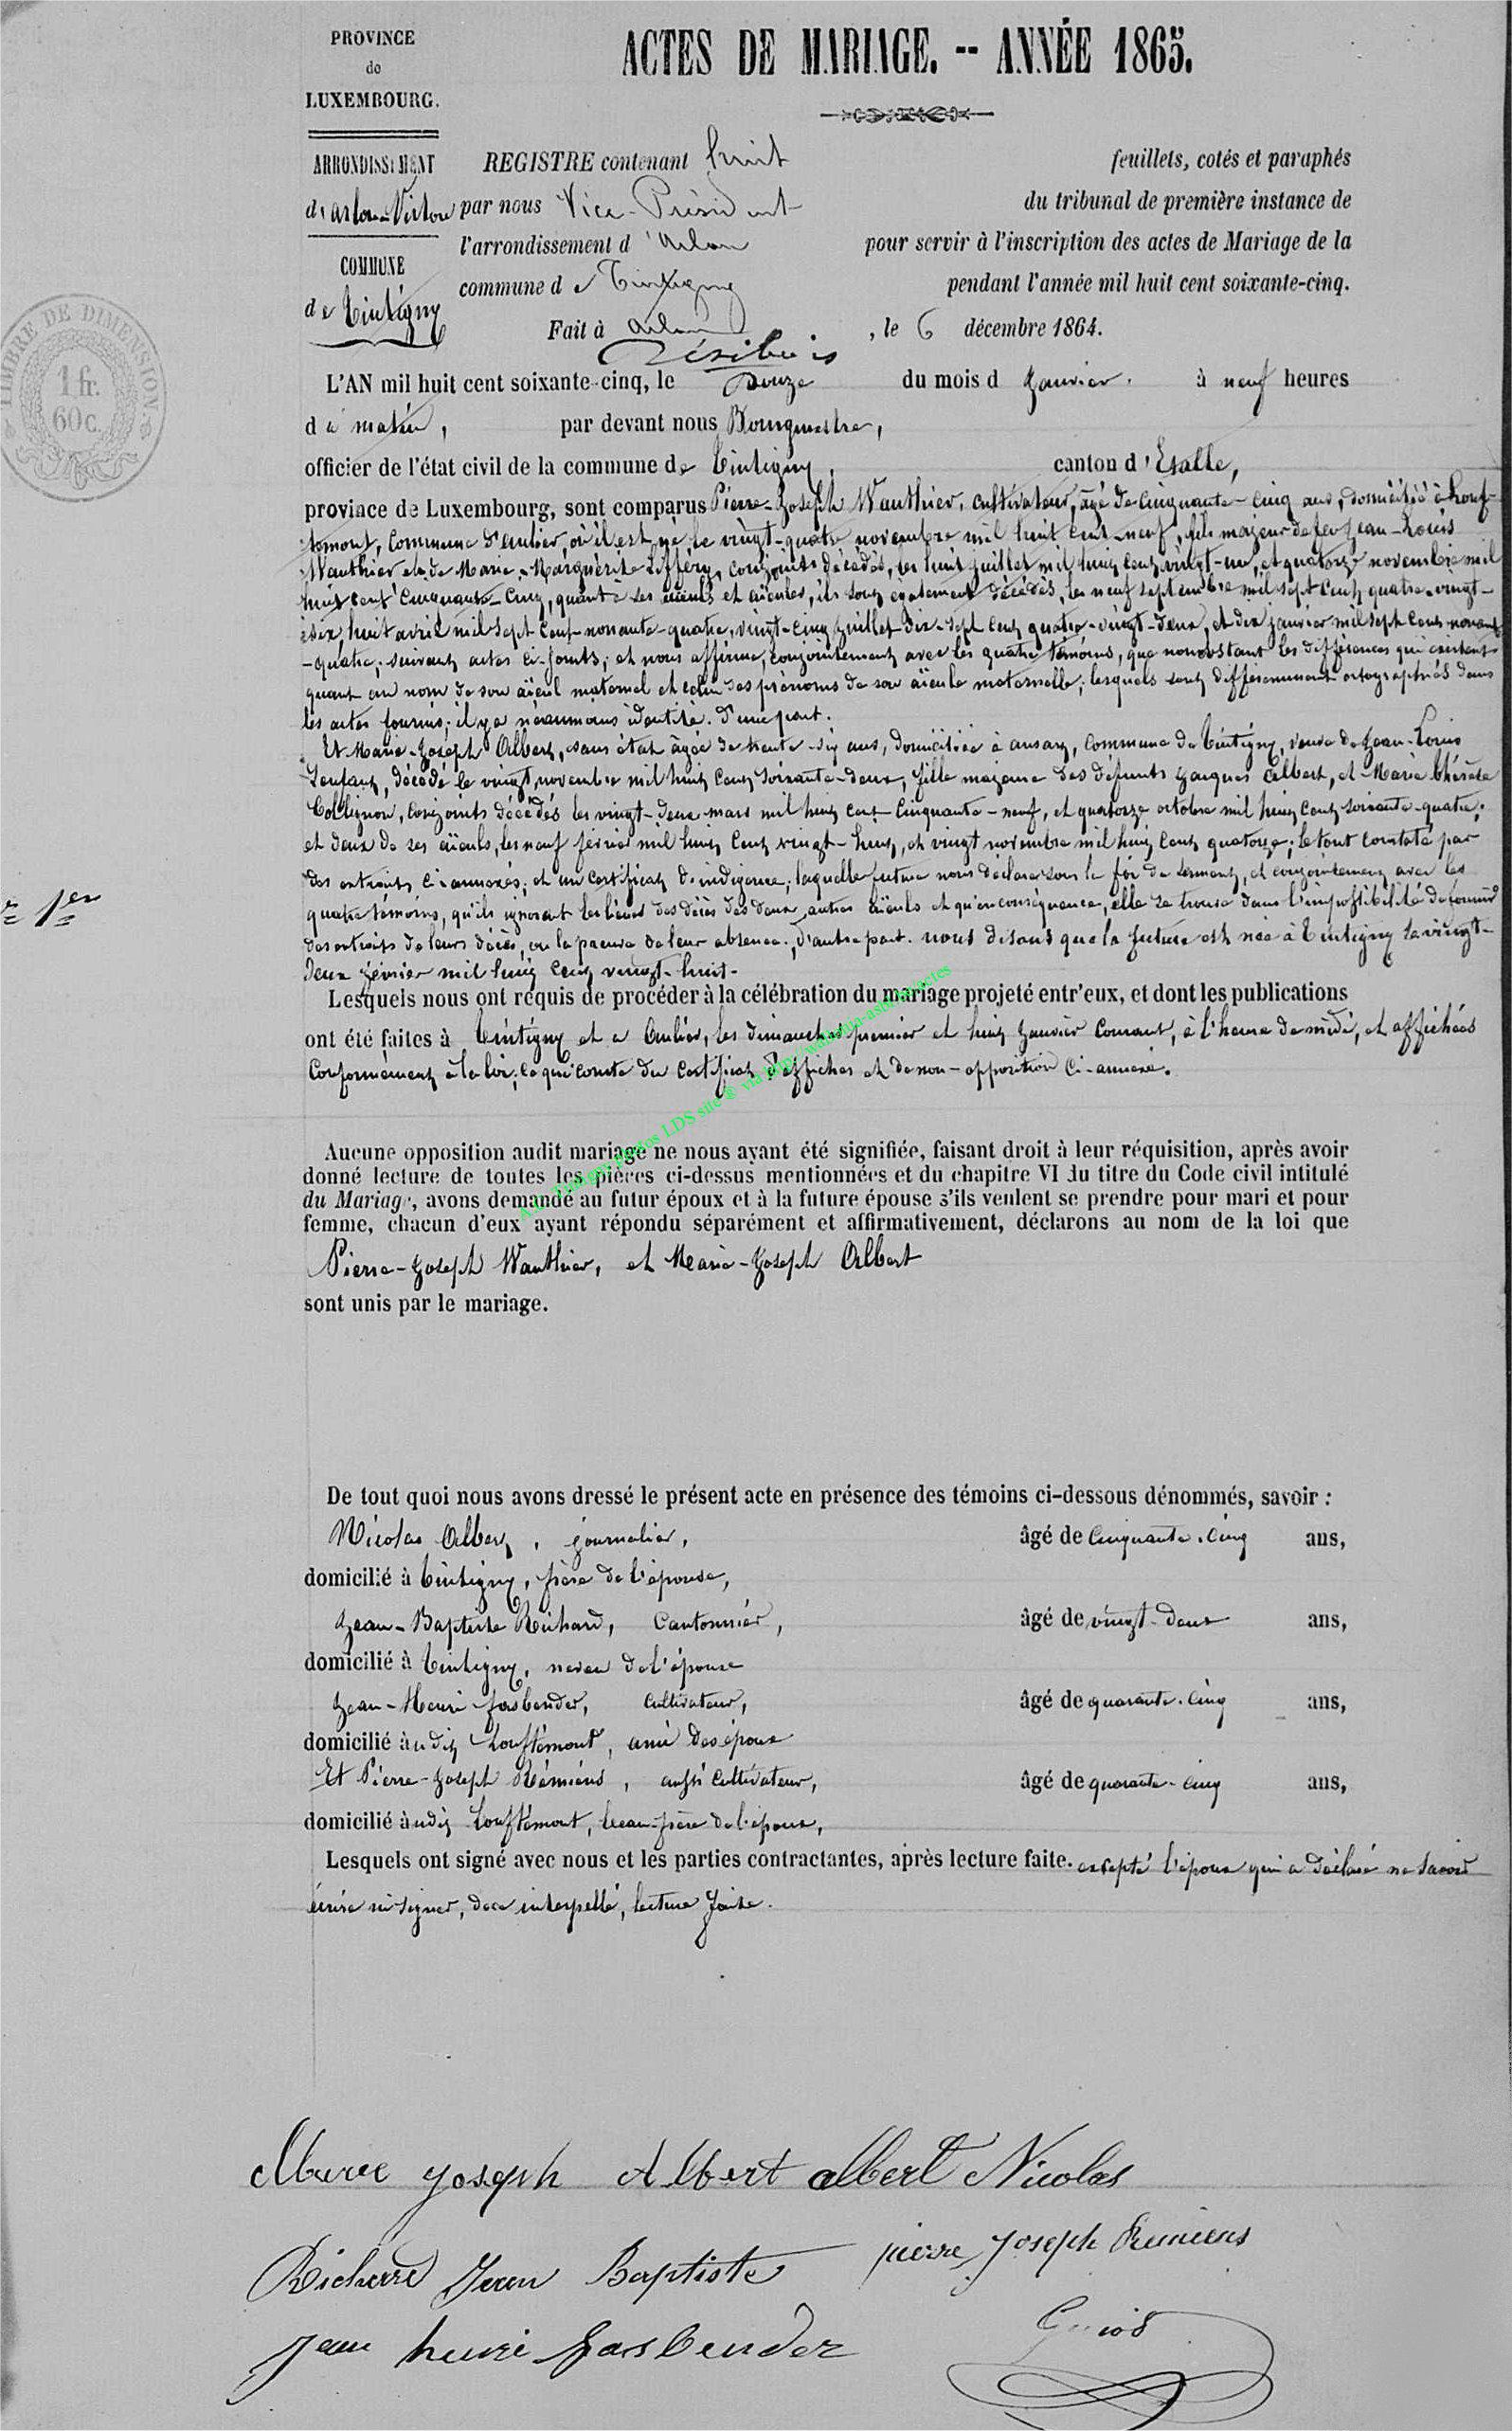 PROVINCE
de
LUXEMBOURG.
ACTES DE MARIAGE. -- ANNÉE 1865.
ARRONDISSEMENT
d'Arlon-Virton
COMMUNE
de Tintigny
TIMBRE DE DIMENSION.
1 fr.
60 c.
REGISTRE contenant huit feuillets, cotés et paraphés
par nous Vice-Président du tribunal de première instance de
l'arrondissement d'Arlon pour servir à l'inscription des actes de Mariage de la
commune de Tintigny pendant l'année mil huit cent soixante-cinq.
Fait à Arlon, le 6 décembre 1864.
L'AN mil huit cent soixante-cinq, le Douze du mois d Janvier, à neuf heures
du matin, par devant nous Bourgmestre,
officier de l'état civil de la commune de Tintigny, canton d'Etalle,
province de Luxembourg, sont comparus Pierre-Joseph Wauthier, cultivateur, âgé de cinquante-cinq ans, domicilié à Louf-
témont, commune d'Anlier, où il est né, le vingt-quatre novembre mil huit cent neuf, fils majeur de feu Jean-Louis
Wauthier et de Marie-Marguerite, conjoints décédés, les huit juillet mil huit cent vingt-un, et quatorze novembre mil
huit cent cinquante-cinq, quant à ses aïeuls et aïeules, ils sont également décédés, les neuf septembre mil sept cent quatre-vingt-
huit avril mil sept cent nonante-quatre, vingt-cinq juillet dix-sept cent quatre-vingt-deux, et dix janvier mil sept cent nonante
-quatre, suivant actes ci-joints; et nous affirme, conjointement avec les quatre témoins, que nonobstant les différences qui existent
quant au nom de son aïeul maternel et celui des prénoms de son aïeule maternelle, lesquels sont différemment ortographiés dans
les actes fournis; il y a néanmoins identité. D'une part.
Et Marie-Joseph Albert, sans état âgée de trente-six ans, domiciliée à Ansart, commune de Tintigny, veuve de Jean-Louis
décédé le vingt novembre mil huit cent soixante-deux, fille majeure des défunts Jacques Albert, et Marie Thérèse
Collignon, conjoints décédés les vingt-deux mars mil huit cent cinquante-neuf, et quatorze octobre mil huit cent soixante-quatre;
et deux de ses aïeuls, les neuf février mil huit cent vingt-huit, et vingt novembre mil huit cent quatorze; le tout constaté par
des extraits ci-annexés; et un certificat d'indigence; laquelle future nous déclare sous la foi du serment, et conjointement avec les
quatre témoins, qu'ils ignorent les lieux des décès des deux autres aïeuls et qu'en conséquence, elle se trouve dans l'impossibilité de fournir
des extraits de leurs décès, ou la preuve de leur absence; d'autre part. nous disons que la future est née à Tintigny le vingt-
deux février mil huit cent vingt-huit-
Lesquels nous ont requis de procéder à la célébration du mariage projeté entr'eux, et dont les publications
ont été faites à Tintigny et à Anlier, les dimanches premier et huit Janvier courant, à l'heure de midi, et affichées
conformément à la loi, ce qui conste du certificat d'affiches et de non-opposition ci-annexé.
Aucune opposition audit mariage ne nous ayant été signifiée, faisant droit à leur réquisition, après avoir
donné lecture de toutes les pièces ci-dessus mentionnées et du chapitre VI du titre du Code civil intitulé
du Mariage, avons demandé au futur époux et à la future épouse s'ils veulent se prendre pour mari et pour
femme, chacun d'eux ayant répondu séparément et affirmativement, déclarons au nom de la loi que
Pierre-Joseph Wauthier, et Marie-Joseph Albert
sont unis par le mariage.
De tout quoi nous avons dressé le présent acte en présence des témoins ci-dessous dénommés, savoir :
Nicolas Albert, journalier, âgé de cinquante-cinq ans,
domicilié à Tintigny, frère de l'épouse,
Jean-Baptiste Richard, Cantonnier, âgé de vingt-deux ans,
domicilié à Tintigny, neveu de l'épouse
Jean-Henri Fasbender, cultivateur, âgé de quarante-cinq ans,
domicilié audit Louftémont, ami des époux
Et Pierre-Joseph Rémiens, aussi cultivateur, âgé de quarante-cinq ans,
domicilié audit Louftémont, beau-frère de l'époux,
Lesquels ont signé avec nous et les parties contractantes, après lecture faite. excepté l'époux qui a déclaré ne savoir
écrire ni signer, de ce interpellé, lecture faite.
1er
Marie Joseph Albert Albert Nicolas
Richard Jean Baptiste pierre Joseph Remiens
Jean henri fasbender